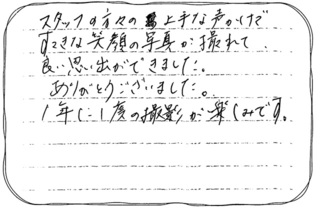 スタッフの方々の上手な声かけで
すてきな笑顔の写真が撮れて
良い思い出ができました。
ありがとうございました。
1年に1度の撮影が楽しみです。